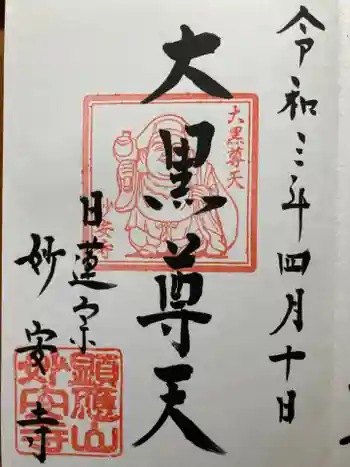 令和三年四月十日
大黒尊天
大黒尊天
妙安寺
日蓮宗
妙安寺
鎮應山
妙安寺